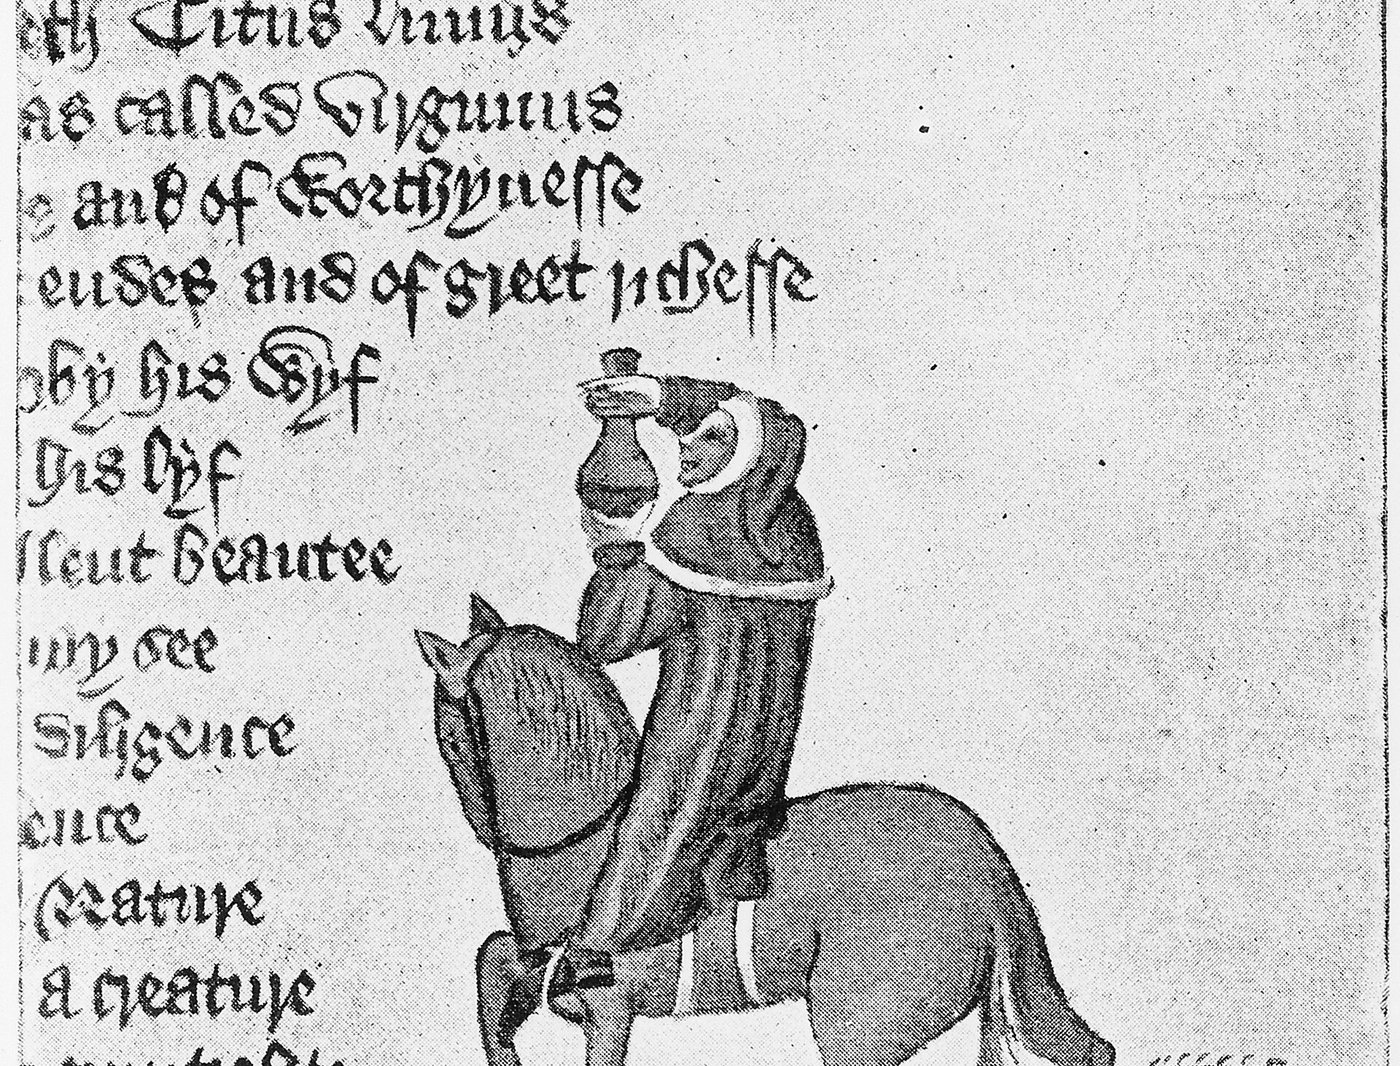 eth Titus Liuius
as called Virginius
and of worthynesse
endes and of greet richesse
by his wyf
his lyf
llent beautee
my see
diligence
ence
creature
a creature